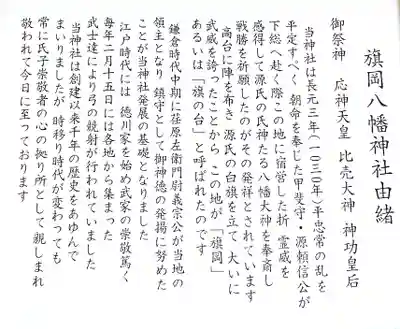 旗岡八幡神社由緒
御祭神　応神天皇　比売大神　神功皇后
当神社は長元三年(一〇三〇年)平忠常の乱を
平定すべく朝命を奉じた甲斐守・源頼信公が
下総へ赴く際この地に宿営した折　霊威を
感得して源氏の氏神たる八幡大神を奉斎し
戦勝を祈願したのがその発祥とされています
高台に陣を布き　源氏の白旗を立て　大いに
武威を誇ったことから　この地が「旗岡」
あるいは「旗の台」と呼ばれたのです
鎌倉時代中期に荏原左衛門尉義宗公が当地の
領主となり　鎮守として御神徳の発揚に努めた
ことが当神社発展の基礎となりました
江戸時代には　徳川家を始め武家の崇敬篤く
毎年二月十五日には各地から集まった
武士達により弓の競射が行われていました
当神社は創建以来千年の歴史をあゆんで
まいりましたが　時移り時代が変わっても
常に氏子崇敬者の心の拠り所として親しまれ
敬われて今日に至っております